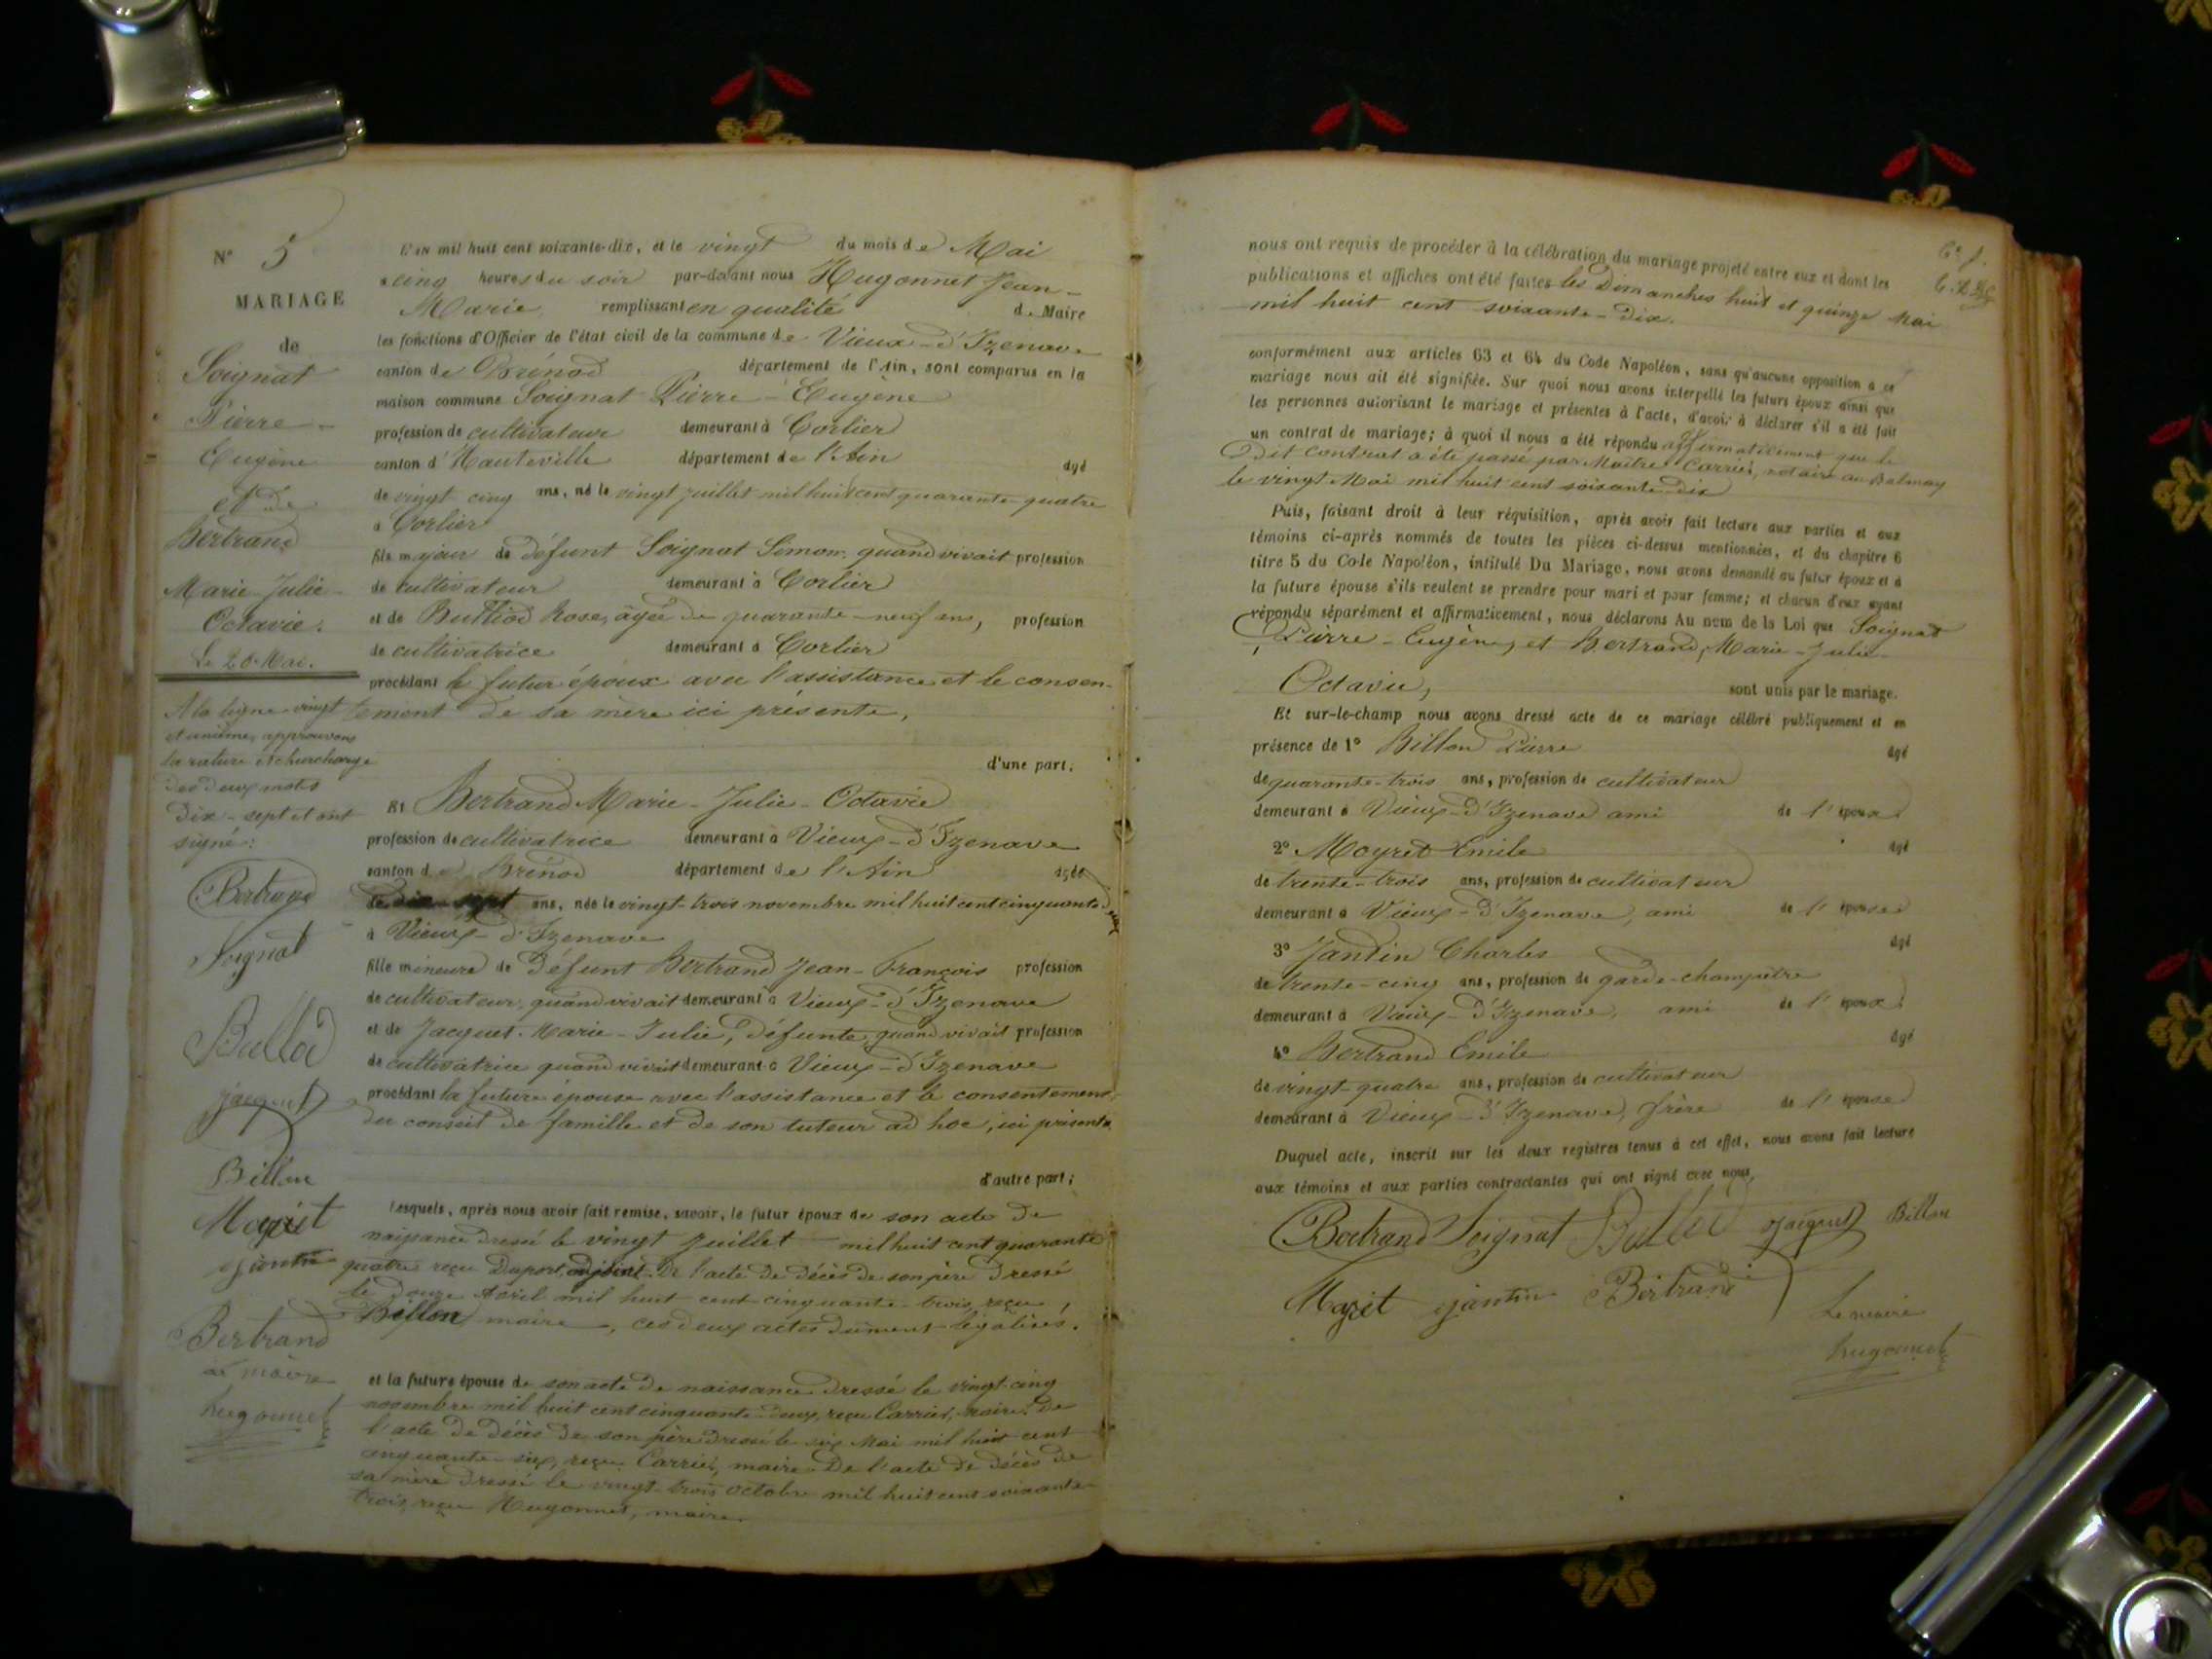 N° 5
MARIAGE
de
Soignat
Pierre-
Eugène
et de
Bertrand
Marie-Julie-
Octavie.
Le 20 Mai.
A la ligne vingt
et unième, approuvons
la rature et surcharge
des deux mots
dix-sept et ont
signé:
Bertrand
Soignat
Ballod
Jacquet
Billon
Moyret
Jantin
Bertrand
Le maire
Hugonnet
L'AN mil huit cent soixante-dix, et le vingt du mois de Mai
a cinq heures du soir par-devant nous Hugonnet Jean-
Marie, remplissant en qualité de Maire
les fonctions d'Officier de l'état civil de la commune de Vieux-d'Izenave
canton de Brénod département de l'Ain, sont comparus en la
maison commune Soignat Pierre-Eugène
profession de cultivateur demeurant à Corlier
canton d'Hauteville département de l'Ain âgé
de vingt cinq ans, né le vingt juillet mil huit cent quarante-quatre
à Corlier
fils majeur de défunt Soignat Simon, quand vivait profession
de cultivateur demeurant à Corlier
et de Rose, âgée de quarante-neuf ans, profession
de cultivatrice demeurant à Corlier
procédant le futur époux avec l'assistance et le consen-
tement de sa mère ici présente,
d'une part.
Et Bertrand Marie-Julie-Octavie
profession de cultivatrice demeurant à Vieux-d'Izenave
canton de Brénod département de l'Ain âgée
de dix-sept ans, née le vingt-trois novembre mil huit cent cinquante-deux
à Vieux-d'Izenave
fille mineure de défunt Bertrand Jean-François profession
de cultivateur, quand vivait demeurant à Vieux-d'Izenave
et de Jacquet Marie-Julie, défunte, quand vivait profession
de cultivatrice quand vivait demeurant à Vieux-d'Izenave
procédant la future épouse avec l'assistance et le consentement
du conseil de famille et de son tuteur ad hoc, ici présents
d'autre part;
Lesquels, après nous avoir fait remise, savoir, le futur époux de son acte de
naissance dressé le vingt Juillet mil huit cent quarante
quatre reçu Duport, adjoint. De l'acte de décès de son père dressé
le douze Avril mil huit cent cinquante-trois, reçu
Billon maire, ces deux actes dûment légalisés.
et la future épouse de son acte de naissance dressé le vingt-cinq
novembre mil huit cent cinquante-deux, reçu Carrier, maire. De
l'acte de décès de son père dressé le six Mai mil huit cent
cinquante-six, reçu Carrier, maire. De l'acte de décès de
sa mère dressé le vingt-trois octobre mil huit cent soixante-
trois, reçu Hugonnet, maire.
nous ont requis de procéder à la célébration du mariage projeté entre eux et dont les
publications et affiches ont été faites les Dimanches huit et quinze Mai
mil huit cent soixante-dix.
conformément aux articles 63 et 64 du Code Napoléon, sans qu'aucune opposition à ce
mariage nous ait été signifiée. Sur quoi nous avons interpellé les futurs époux ainsi que
les personnes autorisant le mariage et présentes à l'acte, d'avoir à déclarer s'il a été fait
un contrat de mariage; à quoi il nous a été répondu affirmativement que le
dit contrat a été passé par Maître Carrier, notaire au Balmay
le vingt Mai mil huit cent soixante-dix
Puis, faisant droit à leur réquisition, après avoir fait lecture aux parties et aux
témoins ci-après nommés de toutes les pièces ci-dessus mentionnées, et du chapitre 6
titre 5 du Code Napoléon, intitulé Du Mariage, nous avons demandé au futur époux et à
la future épouse s'ils veulent se prendre pour mari et pour femme; et chacun d'eux ayant
répondu séparément et affirmativement, nous déclarons Au nom de la Loi que Soignat
Pierre-Eugène, et Bertrand, Marie-Julie-
Octavie, sont unis par le mariage.
Et sur-le-champ nous avons dressé acte de ce mariage célébré publiquement et en
présence de 1° Billon Pierre âgé
de quarante-trois ans, profession de cultivateur
demeurant à Vieux-d'Izenave ami de l'époux
2° Moyret Emile âgé
de trente-trois ans, profession de cultivateur
demeurant à Vieux-d'Izenave, ami de l'épouse
3° Jantin Charles âgé
de trente-cinq ans, profession de garde-champêtre
demeurant à Vieux-d'Izenave, ami de l'époux
4° Bertrand Emile âgé
de vingt-quatre ans, profession de cultivateur
demeurant à Vieux-d'Izenave, frère de l'épouse
Duquel acte, inscrit sur les deux registres tenus à cet effet, nous avons fait lecture
aux témoins et aux parties contractantes qui ont signé avec nous,
Bertrand Soignat Ballod Jacquet Billon
Moyret Jantin Bertrand
Le maire
Hugonnet